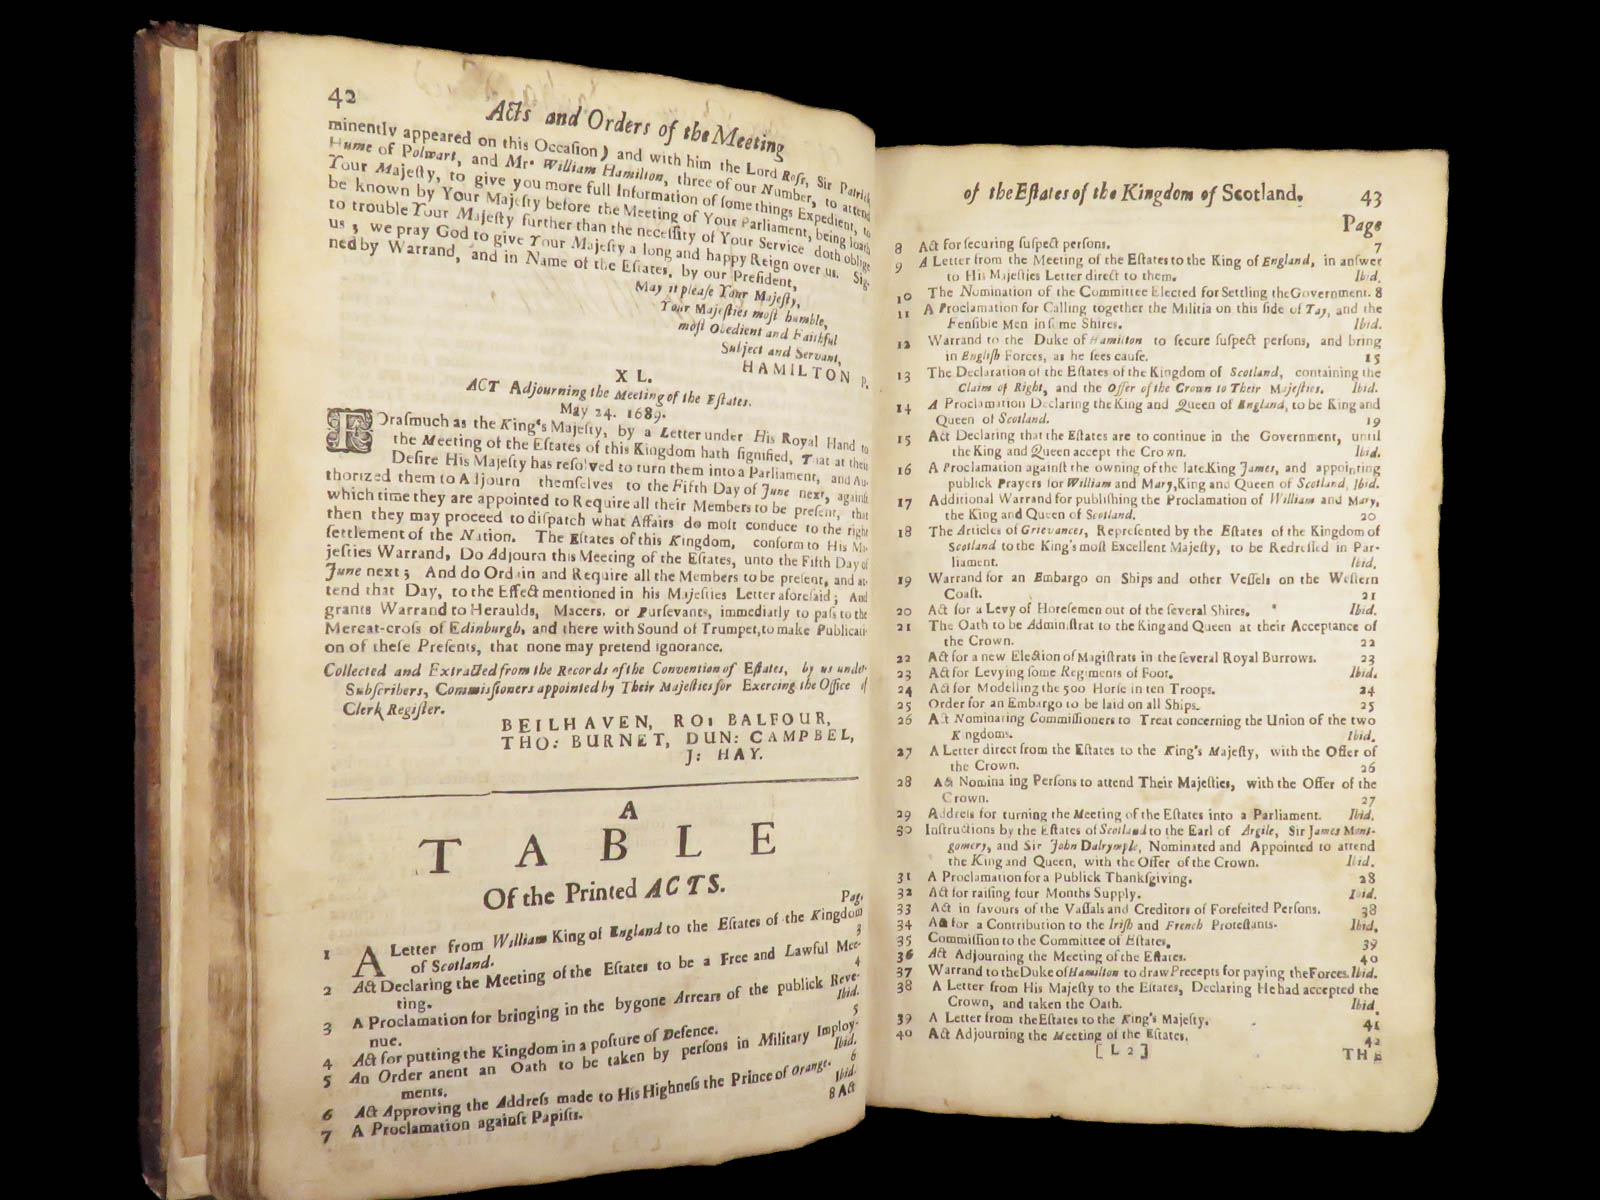 42
Acts and Orders of the Meeting
minently appeared on this Occaſion) and with him the Lord Roſs, Sir Patrick
Hume of Polwart, and Mr. William Hamilton, three of our Number, to attend
Your Majeſty, to give you more full Information of ſome things Expedient, to
be known by Your Majeſty before the Meeting of Your Parliament, being loath
to trouble Your Majeſty further than the neceſſity of Your Service doth oblige
us ; we pray God to give Your Majeſty a long and happy Reign over us. Sig-
ned by Warrand, and in Name of the Eſtates, by our Preſident,
May it pleaſe Your Majeſty,
Your Majeſties moſt humble,
moſt Obedient and Faithful
Subject and Servant,
HAMILTON P.
XL.
ACT Adjourning the Meeting of the Eſtates.
May 24. 1689.
FOraſmuch as the King's Majeſty, by a Letter under His Royal Hand to
the Meeting of the Eſtates of this Kingdom hath ſignified, That at their
Deſire His Majeſty has reſolved to turn them into a Parliament, and Au-
thorized them to Adjourn themſelves to the Fifth Day of June next, againſt
which time they are appointed to Require all their Members to be preſent, that
then they may proceed to diſpatch what Affairs do moſt conduce to the right
ſettlement of the Nation. The Eſtates of this Kingdom, conform to His Ma-
jeſties Warrand, Do Adjourn this Meeting of the Eſtates, unto the Fifth Day of
June next ; And do Ordain and Require all the Members to be preſent, and at-
tend that Day, to the Effect mentioned in his Majeſties Letter aforeſaid ; And
grants Warrand to Heraulds, Macers, or Purſevants, immediatly to paſs to the
Mercat-croſs of Edinburgh, and there with Sound of Trumpet, to make Publicati-
on of theſe Preſents, that none may pretend ignorance.
Collected and Extracted from the Records of the Convention of Eſtates, by us under-
Subſcribers, Commiſſioners appointed by Their Majeſties for Exercing the Office of
Clerk Regiſter.
BEILHAVEN, RO: BALFOUR,
THO: BURNET, DUN: CAMPBEL,
J: HAY.
A
TABLE
Of the Printed ACTS.
Page
1 A Letter from William King of England to the Eſtates of the Kingdom
of Scotland. 3
2 Act Declaring the Meeting of the Eſtates to be a Free and Lawful Mee-
ting. 4
3 A Proclamation for bringing in the bygone Arrears of the publick Reve-
nue. Ibid.
4 Act for putting the Kingdom in a poſture of Defence. 5
5 An Order anent an Oath to be taken by perſons in Military Imploy-
ments. Ibid.
6 Act Approving the Addreſs made to His Highneſs the Prince of Orange. 6
7 A Proclamation againſt Papiſts. Ibid.
8 Act
of the Eſtates of the Kingdom of Scotland. 43
Page
8 Act for ſecuring ſuſpect perſons. 7
9 A Letter from the Meeting of the Eſtates to the King of England, in anſwer
to His Majeſties Letter direct to them. Ibid.
10 The Nomination of the Committee Elected for Settling the Government. 8
11 A Proclamation for Calling together the Militia on this ſide of Tay, and the
Fenſible Men in ſome Shires. Ibid.
12 Warrand to the Duke of Hamilton to ſecure ſuſpect perſons, and bring
in Engliſh Forces, as he ſees cauſe. 15
13 The Declaration of the Eſtates of the Kingdom of Scotland, containing the
Claim of Right, and the Offer of the Crown to Their Majeſties. Ibid.
14 A Proclamation Declaring the King and Queen of England, to be King and
Queen of Scotland. 19
15 Act Declaring that the Eſtates are to continue in the Government, until
the King and Queen accept the Crown. Ibid.
16 A Proclamation againſt the owning of the late King James, and appointing
publick Prayers for William and Mary, King and Queen of Scotland, Ibid.
17 Additional Warrand for publiſhing the Proclamation of William and Mary,
the King and Queen of Scotland. 20
18 The Articles of Grievances, Repreſented by the Eſtates of the Kingdom of
Scotland to the King's moſt Excellent Majeſty, to be Redreſſed in Par-
liament. Ibid.
19 Warrand for an Embargo on Ships and other Veſſels on the Weſtern
Coaſt. 21
20 Act for a Levy of Horeſemen out of the ſeveral Shires. Ibid.
21 The Oath to be Adminiſtrat to the King and Queen at their Acceptance of
the Crown. 22
22 Act for a new Election of Magiſtrats in the ſeveral Royal Burrows. 23
23 Act for Levying ſome Regiments of Foot. Ibid.
24 Act for Modelling the 500 Horſe in ten Troops. 24
25 Order for an Embargo to be laid on all Ships. 25
26 Act Nominating Commiſſioners to Treat concerning the Union of the two
Kingdoms. Ibid.
27 A Letter direct from the Eſtates to the King's Majeſty, with the Offer of
the Crown. 26
28 Act Nominating Perſons to attend Their Majeſties, with the Offer of the
Crown. 27
29 Addreſs for turning the Meeting of the Eſtates into a Parliament. Ibid.
30 Inſtructions by the Eſtates of Scotland to the Earl of Argile, Sir James Mont-
gomery, and Sir John Dalrymple, Nominated and Appointed to attend
the King and Queen, with the Offer of the Crown. Ibid.
31 A Proclamation for a Publick Thankſgiving. 28
32 Act for raiſing four Months Supply. Ibid.
33 Act in favours of the Vaſſals and Creditors of Forefeited Perſons. 38
34 Act for a Contribution to the Iriſh and French Proteſtants. Ibid.
35 Commiſſion to the Committee of Eſtates. 39
36 Act Adjourning the Meeting of the Eſtates. 40
37 Warrand to the Duke of Hamilton to draw Precepts for paying the Forces. Ibid.
38 A Letter from His Majeſty to the Eſtates, Declaring He had accepted the
Crown, and taken the Oath. Ibid.
39 A Letter from the Eſtates to the King's Majeſty. 41
40 Act Adjourning the Meeting of the Eſtates. 42
[ L 2 ]
THE